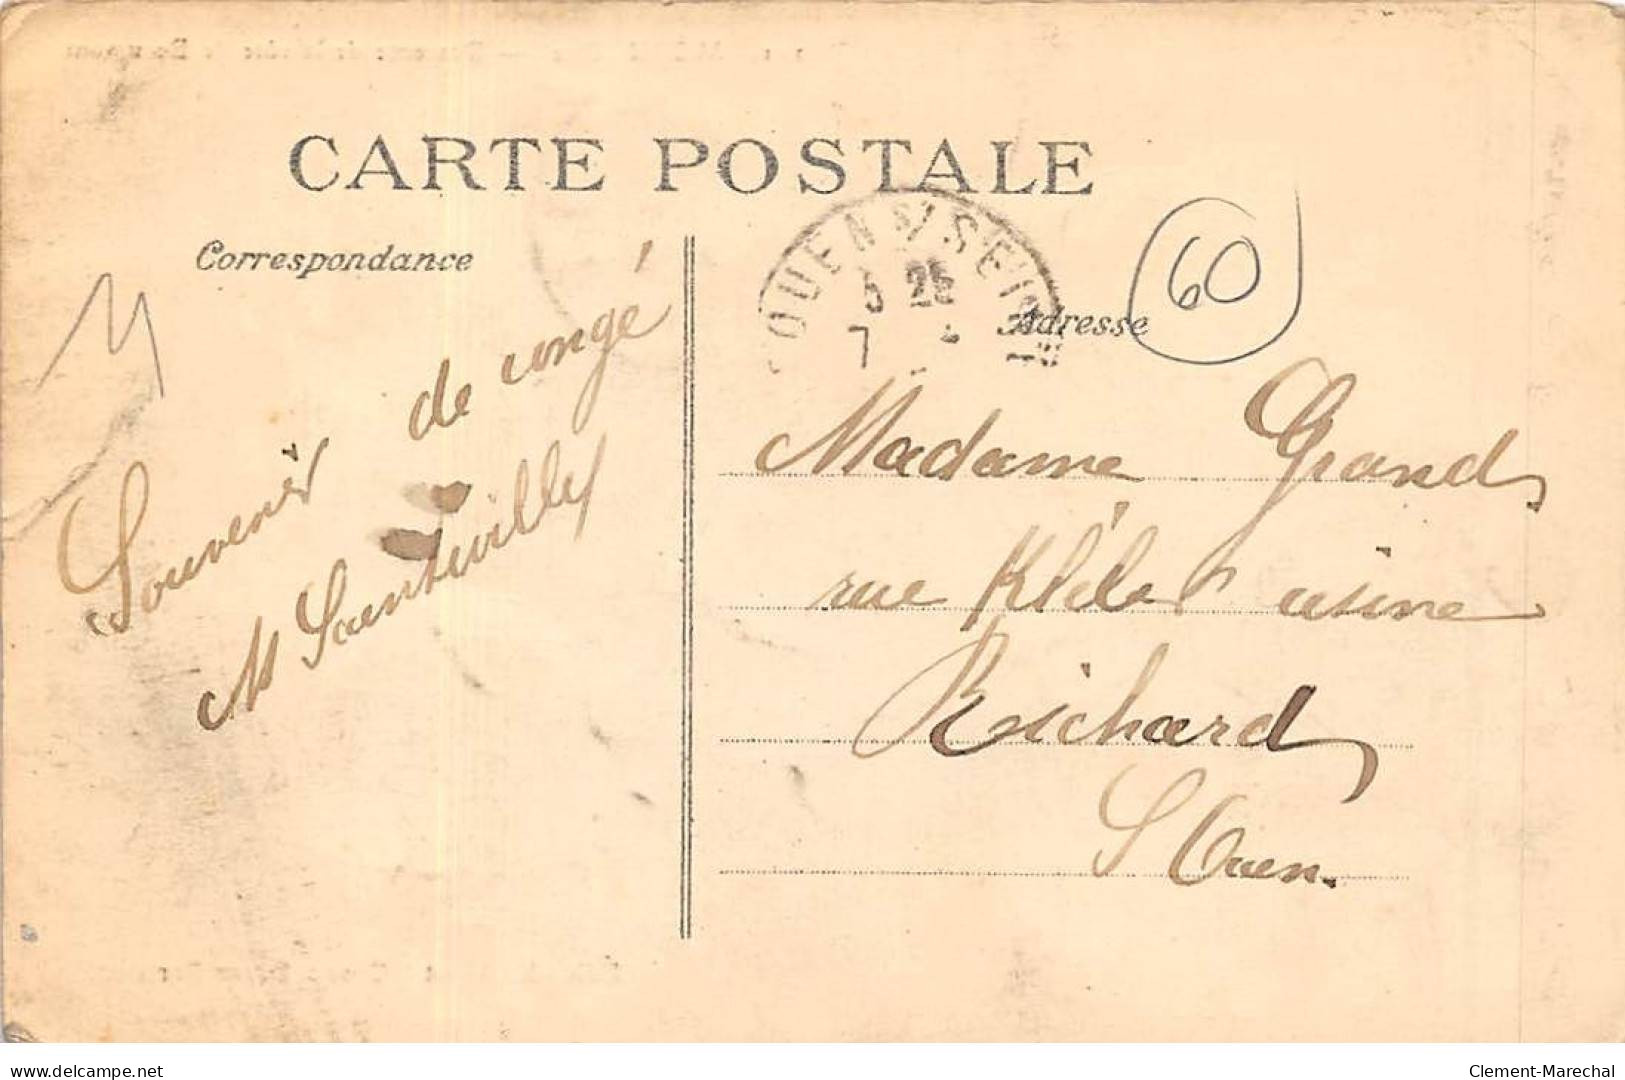 CARTE POSTALE
Correspondance
Souvenir de congé
M
OUEN S/ SEINE
5 25
7
Adresse
60
Madame Grand
rue Kléber usine
Richard
S Ouen.
delcampe.net
Clement-Marechal